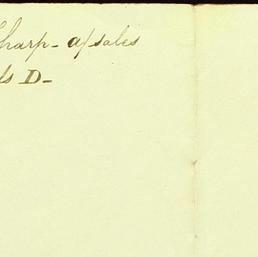 Sharp - a/sales
ls D -